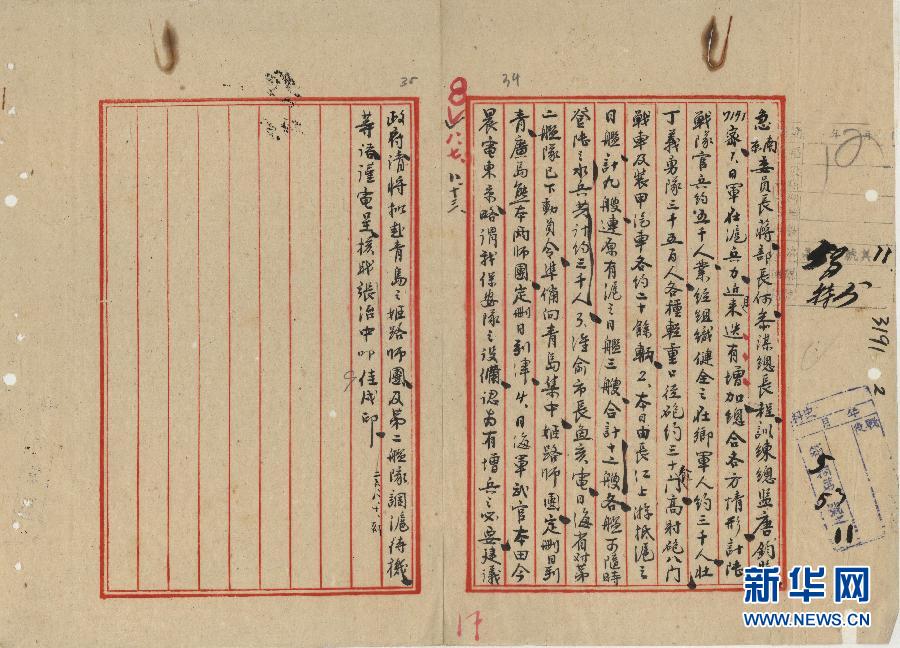 急南京委員長蔣部長何參謀總長程訓練總監唐鈞鑒
7191密1、日軍在滬兵力近來迭有增加總合各方情形計陸
戰隊官兵約五千人業經組織健全之在鄉軍人約三千人壯
丁義勇隊三千五百人各種輕重口徑砲約三十門高射砲八門
戰車及裝甲汽車各約二十餘輛2、本日由長江上游抵滬之
日艦計九艘連原有滬之日艦三艘合計十二艘各艦可隨時
登陸之水兵共計約三千人3、准俞市長魚亥電日海省對第
二艦隊已下動員令準備向青島集中姬路師團定刪日到
青廣島熊本兩師團定刪日到津4、日海軍武官本田今
晨電東京略謂我保安隊之設備認為有增兵之必要建議
政府請將擬赴青島之姬路師團及第二艦隊調滬待機
等語謹電呈核職張治中叩佳戌印
34
35
8
八.七.
八十三
3191
2
11
5
53
11
17
新华网
WWW.NEWS.CN